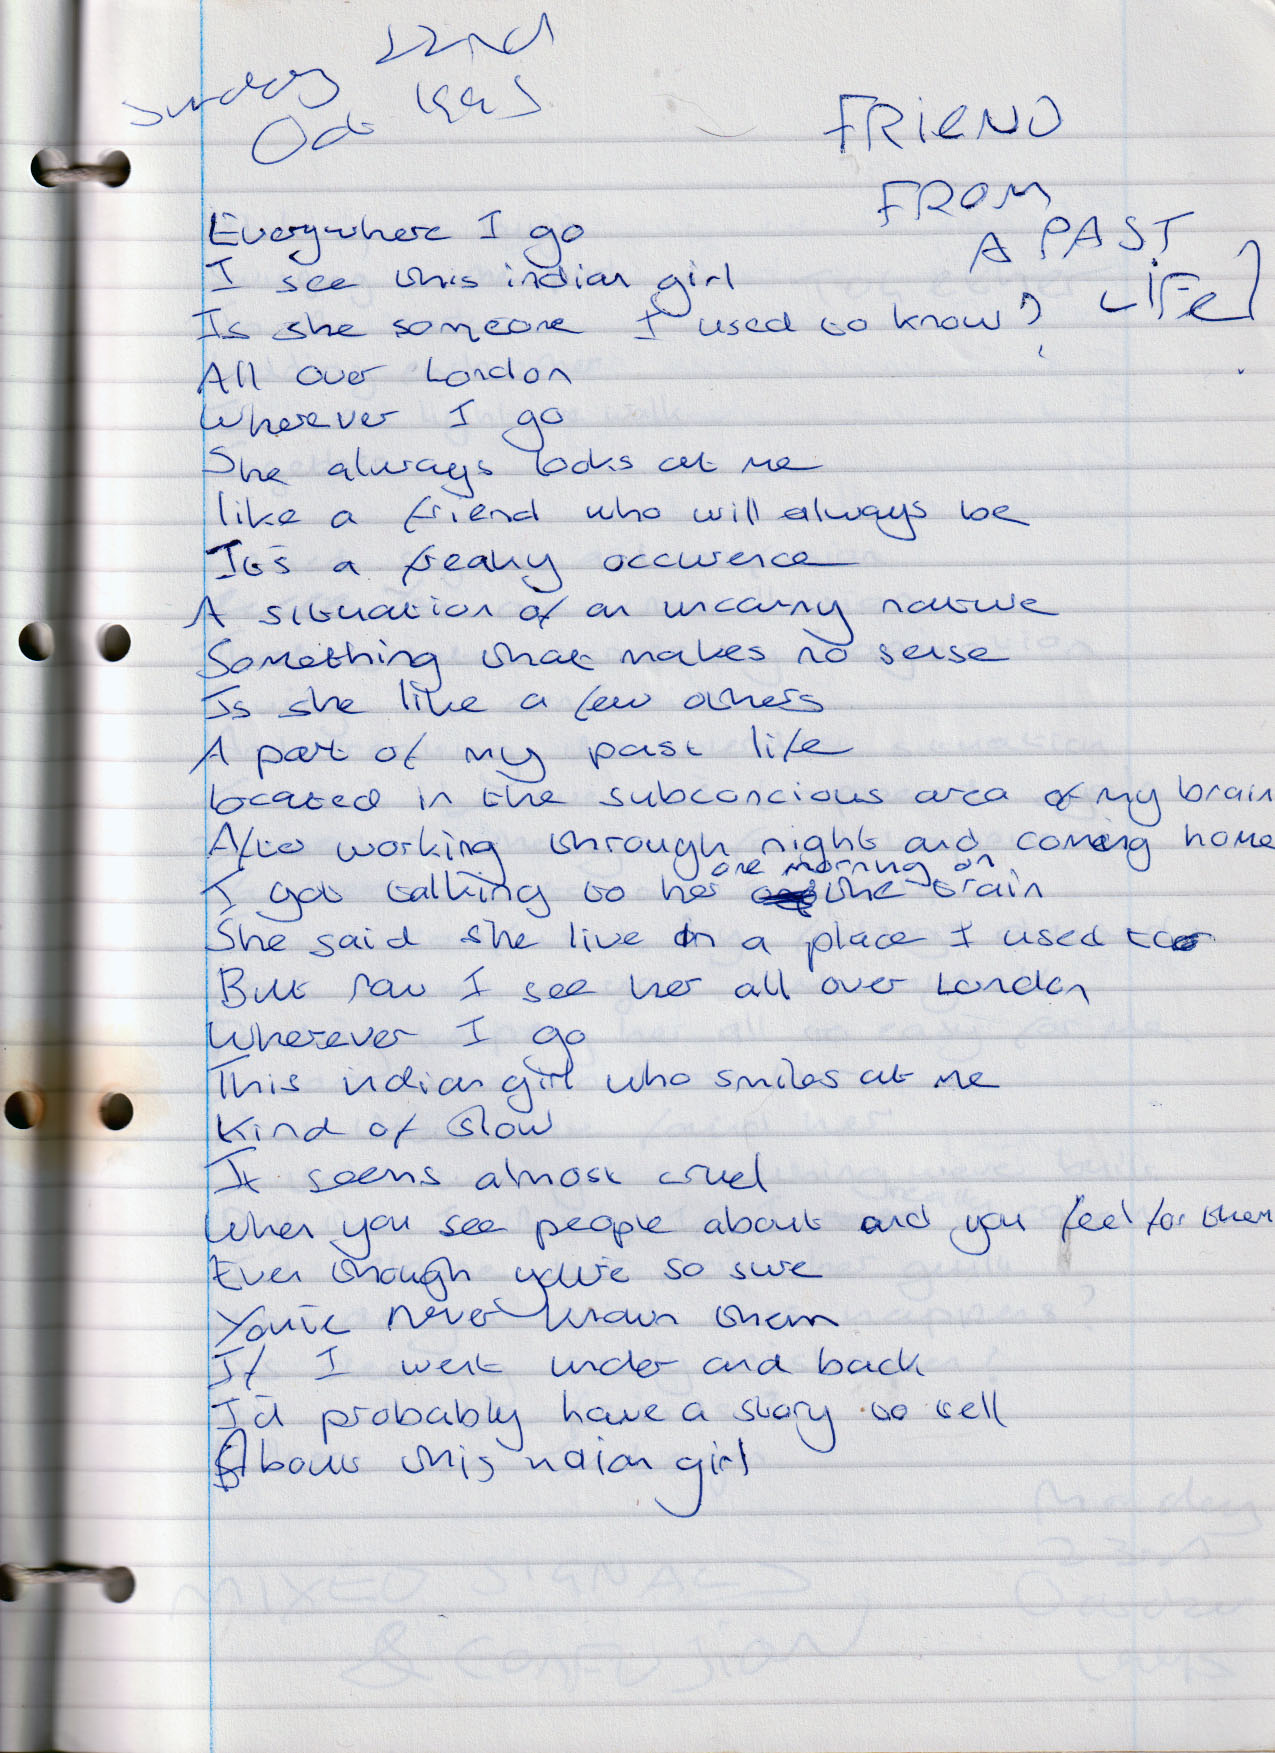 Sunday 22nd
Oct 1995
FRiEND
FROM
A PAST
LiFe?
Everywhere I go
I see this indian girl
Is she someone I used to know?
All over London
Wherever I go
She always looks at me
like a friend who will always be
It's a freaky occurence
A situation of an uncanny nature
Something that makes no sense
Is she like a few others
A part of my past life
located in the subconcious area of my brain
After working through night and coming home
I got talking to her one morning on the train
She said she live in a place I used to
But now I see her all over London
Wherever I go
This indian girl who smiles at me
Kind of slow
It seems almost cruel
When you see people about and you feel for them
Even though you're so sure
You've never known them
If I went under and back
I'd probably have a story to tell
About this indian girl
MIXED SIGNALS
& CONFUSION
Monday
23rd
October
1995